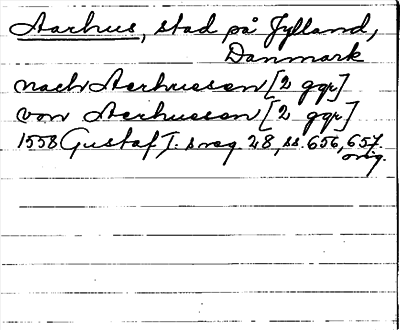 Aarhus, stad på Jylland,
Danmark
nach Aerhussen [2 ggr]
von Aerhussen [2 ggr]
1558 Gustaf I:s reg. 28, ss. 656, 657.
orig.